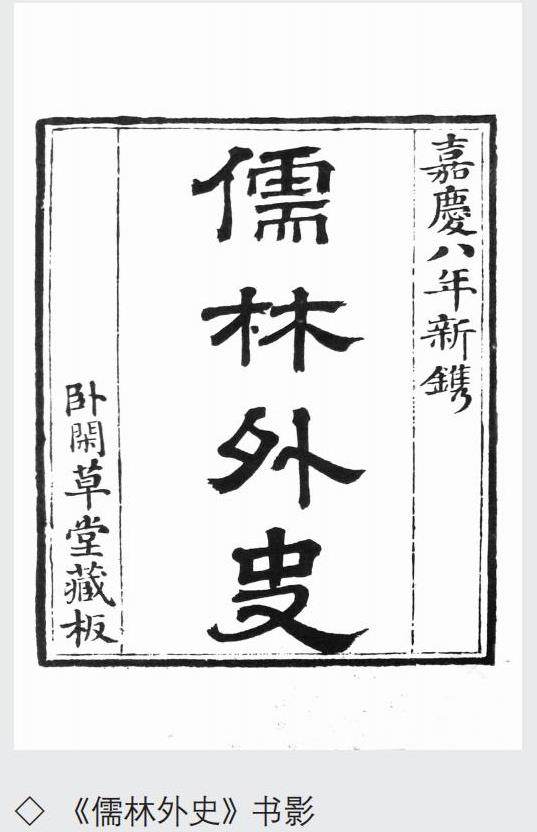 嘉慶八年新鐫
儒林外史
卧閑草堂藏板
◇ 《儒林外史》书影